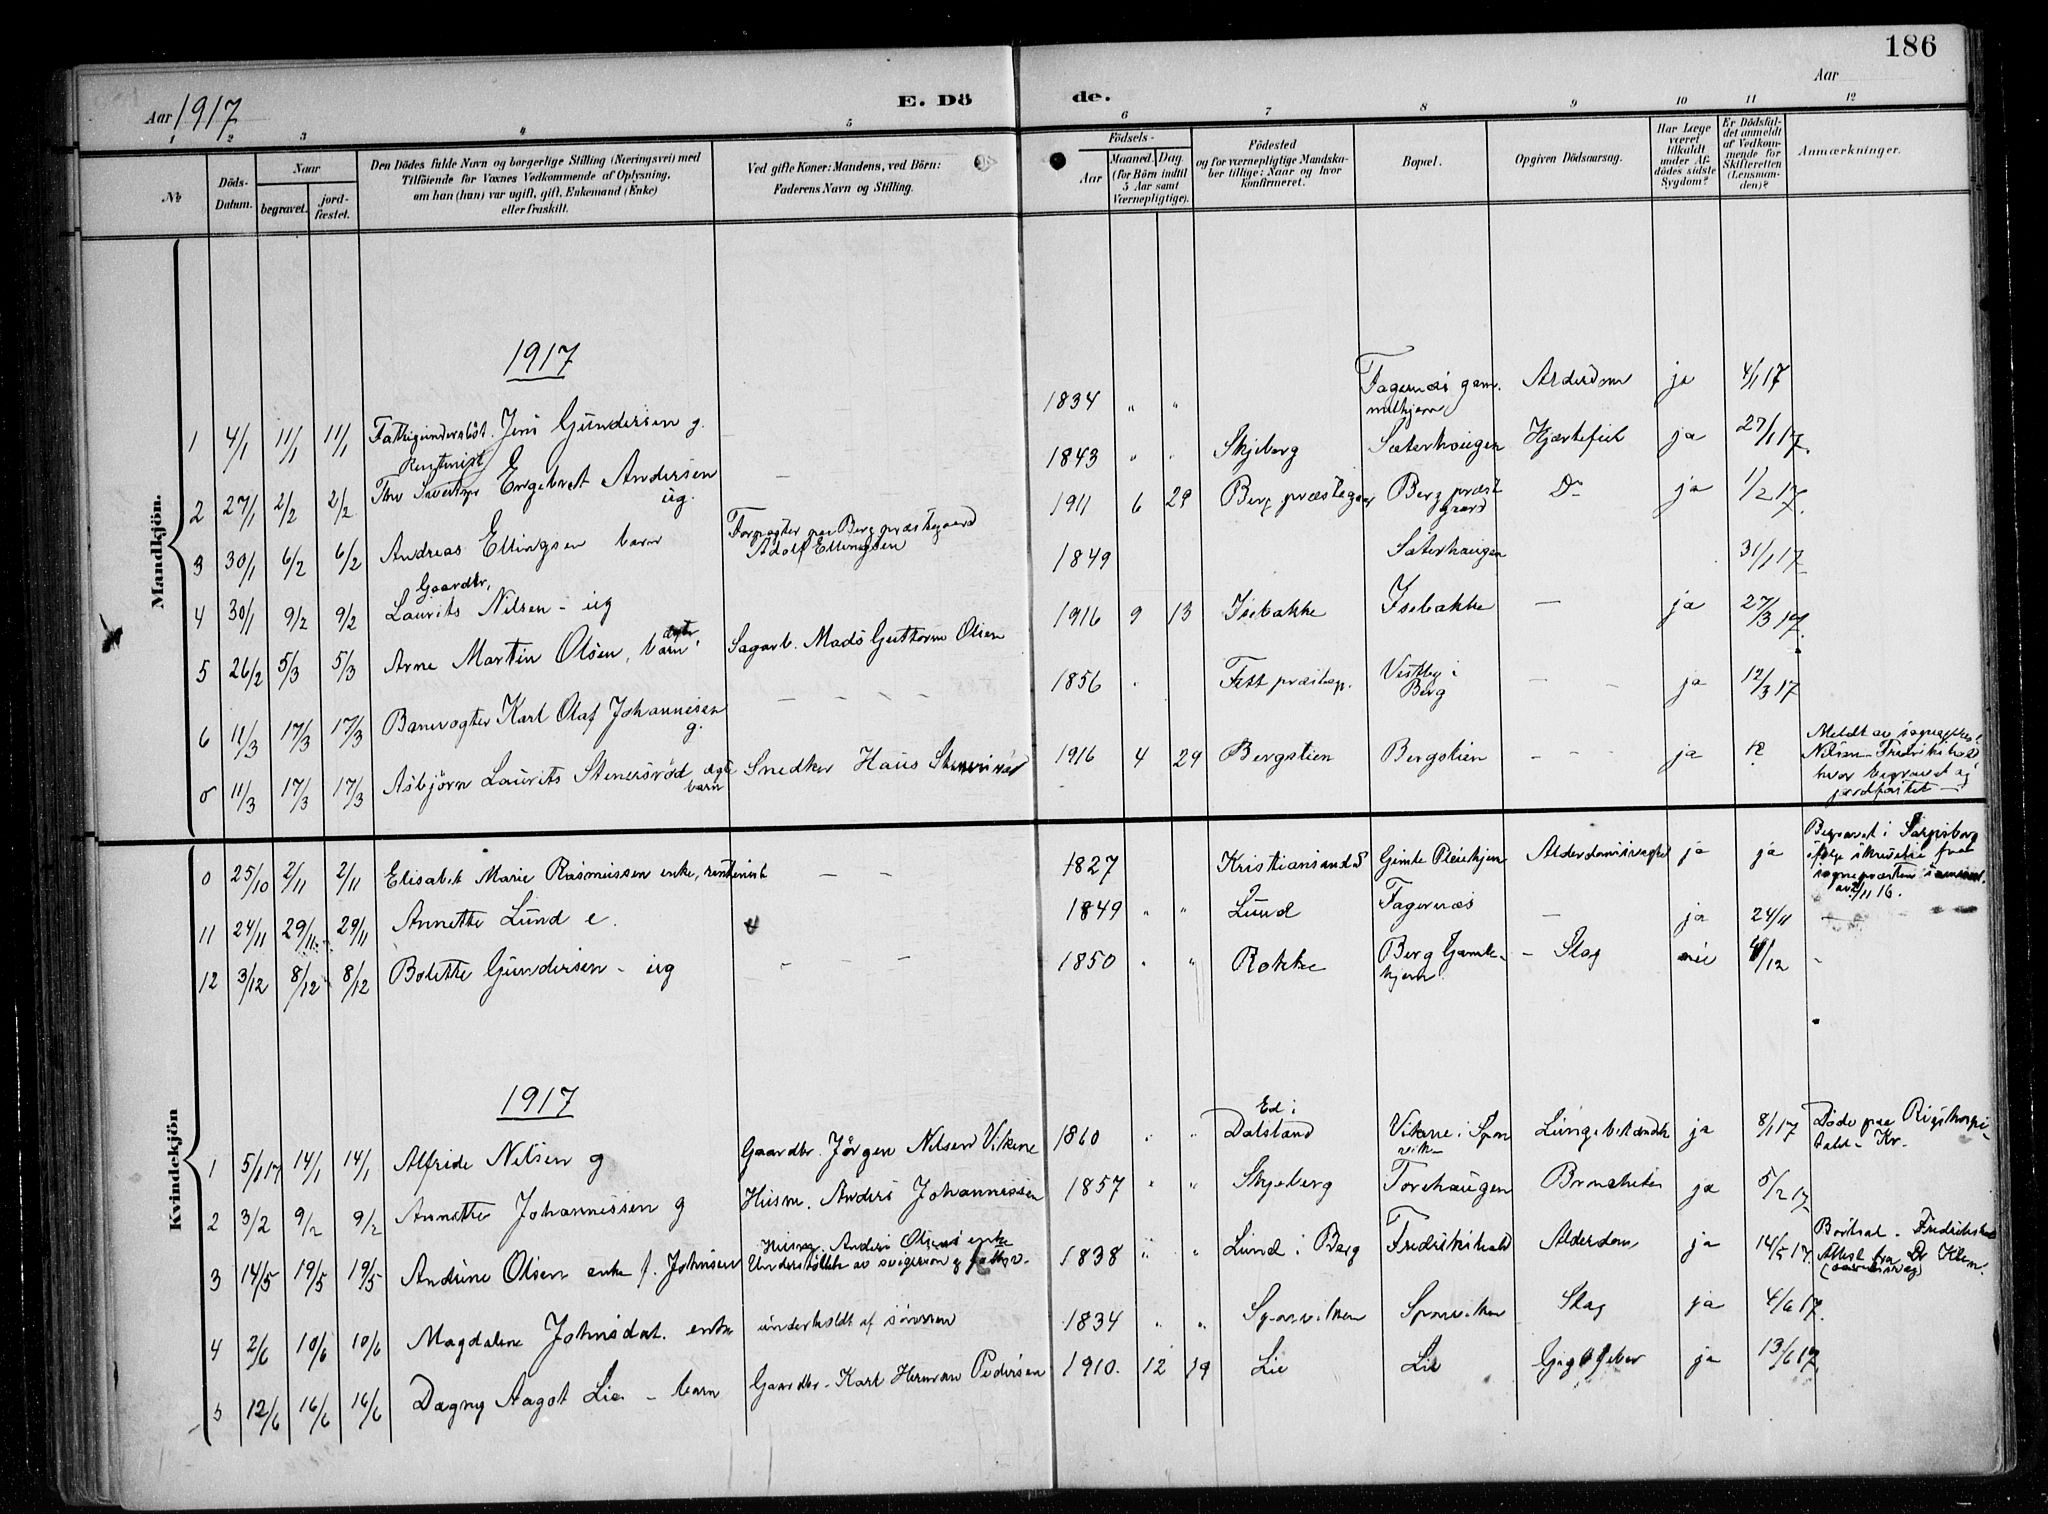 186
Aar 1917
E. Dö
de.
Aar
1 2 3 4 5 6 7 8 9 10 11 12
No
Döds-
Datum.
Naar
begravet.
jord-
fæstet.
Den Dödes fulde Navn og borgerlige Stilling (Næringsvei) med
Tilföiende for Voxnes Vedkommende af Oplysning,
om han (hun) var ugift, gift, Enkemand (Enke)
eller fraskilt.
Ved gifte Koner: Mandens, ved Börn:
Faderens Navn og Stilling.
Födsels-
Aar
Maaned. Dag.
(for Börn indtil
5 Aar samt
Værnepligtige).
Födested
og for værnepligtige Mandska-
ber tillige: Naar og hvor
konfirmeret.
Bopæl.
Opgiven Dödsaarsag.
Har Læge
været
tilkaldt
under Af-
dödes sidste
Sygdom?
Er Dödsfal-
det anmeldt
af Vedkom-
mende for
Skifteretten
(Lensman-
den)?
Anmærkninger.
Mandkjön.
1917
1 4/1 11/1 11/1 Fattigunderstöt. Jens Gundersen g. 1834 " " Fagernæs gam- Alderdom ja 4/1 17
Rentenist
2 27/1 2/2 2/2 Engebret Andersen ug. — 1843 " " Skjeberg Sæterhaugen Hjertefeil ja 27/1 17.
3 30/1 6/2 6/2 Andreas Ellingsen barn Forpagter paa Berg præstegaard
Adolf Ellingsen 1911 6 29 Berg præstegaar Berg præst
gaard Do ja 1/2 17.
Gaardbr.
4 30/1 9/2 9/2 Laurits Nilsen - ug 1849 Sæterhaugen 31/1 17.
5 26/2 5/3 5/3 Arne Martin Olsen, ægte barn. Sagarb. Mads Guttorm Olsen 1916 9 13 Isebakke Isebakke — ja 27/3 17.
6 11/3 17/3 17/3 Banevogter Karl Olaf Johannesen
g. — — — — 1856 " Fett præstegj. Vestby i
Berg — — ja 12/3 17
0 11/3 17/3 17/3 Asbjörn Laurits Stenersröd ægte
barn Snedker Hans Stenersröd 1916 4 29 Bergstien Bergstien - - - ja 12
Meldt av sogneprest
Nilsen Fredrikshald
hvor begravet og
jordfæstet —
0 25/10 2/11 2/11 Elisabet Marie Rasmussen enke, rentenist — — 1827 Kristianssund S Gimle Pleiehjem Alderdomssvaghet ja ja
Begravet i Sarpsborg
ifölge skrivelse fra
sognepræsten sammest.
av 2/11 16.
11 24/11 29/11 29/11 Annette Lund e. 1849 " " Lund Fagernæs — ja 24/11 —
12 3/12 8/12 8/12 Bolette Gundersen - ug - - - 1850 " " Rokke Berg Gamle-
hjem - Slag nei 4/12 -
Kvindekjön
1917
1 5/1 17 14/1 14/1 Alfride Nilsen g Gaardbr. Jörgen Nilsen Vikene 1860 " " Ed i
Dalsland Vikene i Spon-
vik Lungebetændelse ja 8/1 17 Döde paa Rigshospi-
talet - Kr.
2 3/2 9/2 9/2 Annette Johannessen g Husm. Anders Johannessen 1857 " " Skjeberg Torehaugen Bronchitis ja 5/2 17.
3 14/5 19/5 19/5 Andrine Olsen enke f. Johnsen Husmg. Anders Olsens enke
Understöttet av svigersön 1838 " " Lund i Berg Fredrikshald Alderdom, ja 14/5 17. Bortsat - Fredrikshald
Attest fra Dr Klem.
4 2/6 10/6 10/6 Magdalene Johnsdat. enke underholdt af sönnen 1834 " " Sponviken Sponviken Slag ja 4/6 17.
5 12/6 16/6 16/6 Dagny Aagot Lie - barn Gaardbr. Karl Herman Pedersen 1910. 12 19 Lie Lie Gigtfeber ja 13/6 17.